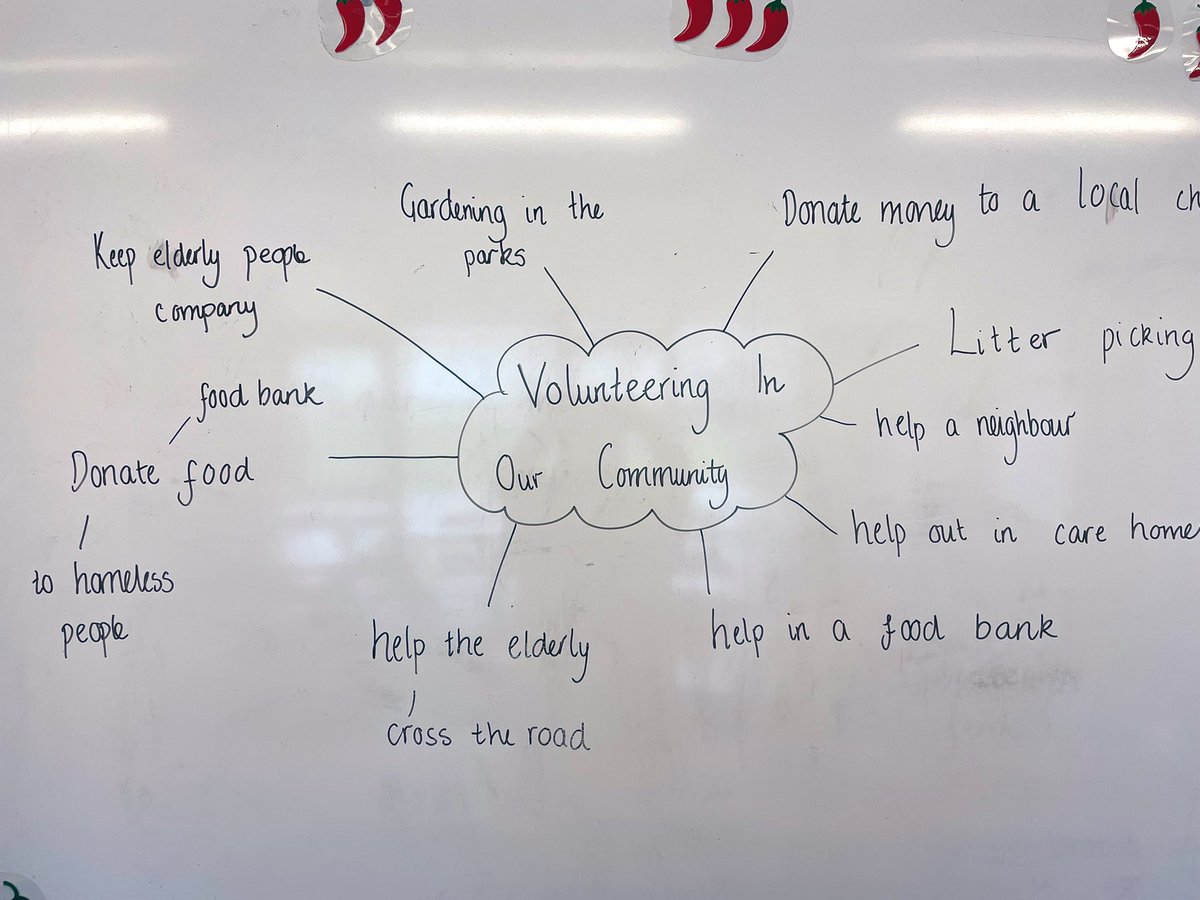 Gardening in the
parks
Donate money to a local
Keep elderly people
company
Litter picking
food bank
Volunteering In
Our Community
help a neighbour
Donate food
help out in care home
to homeless
people
help the elderly
cross the road
help in a food bank